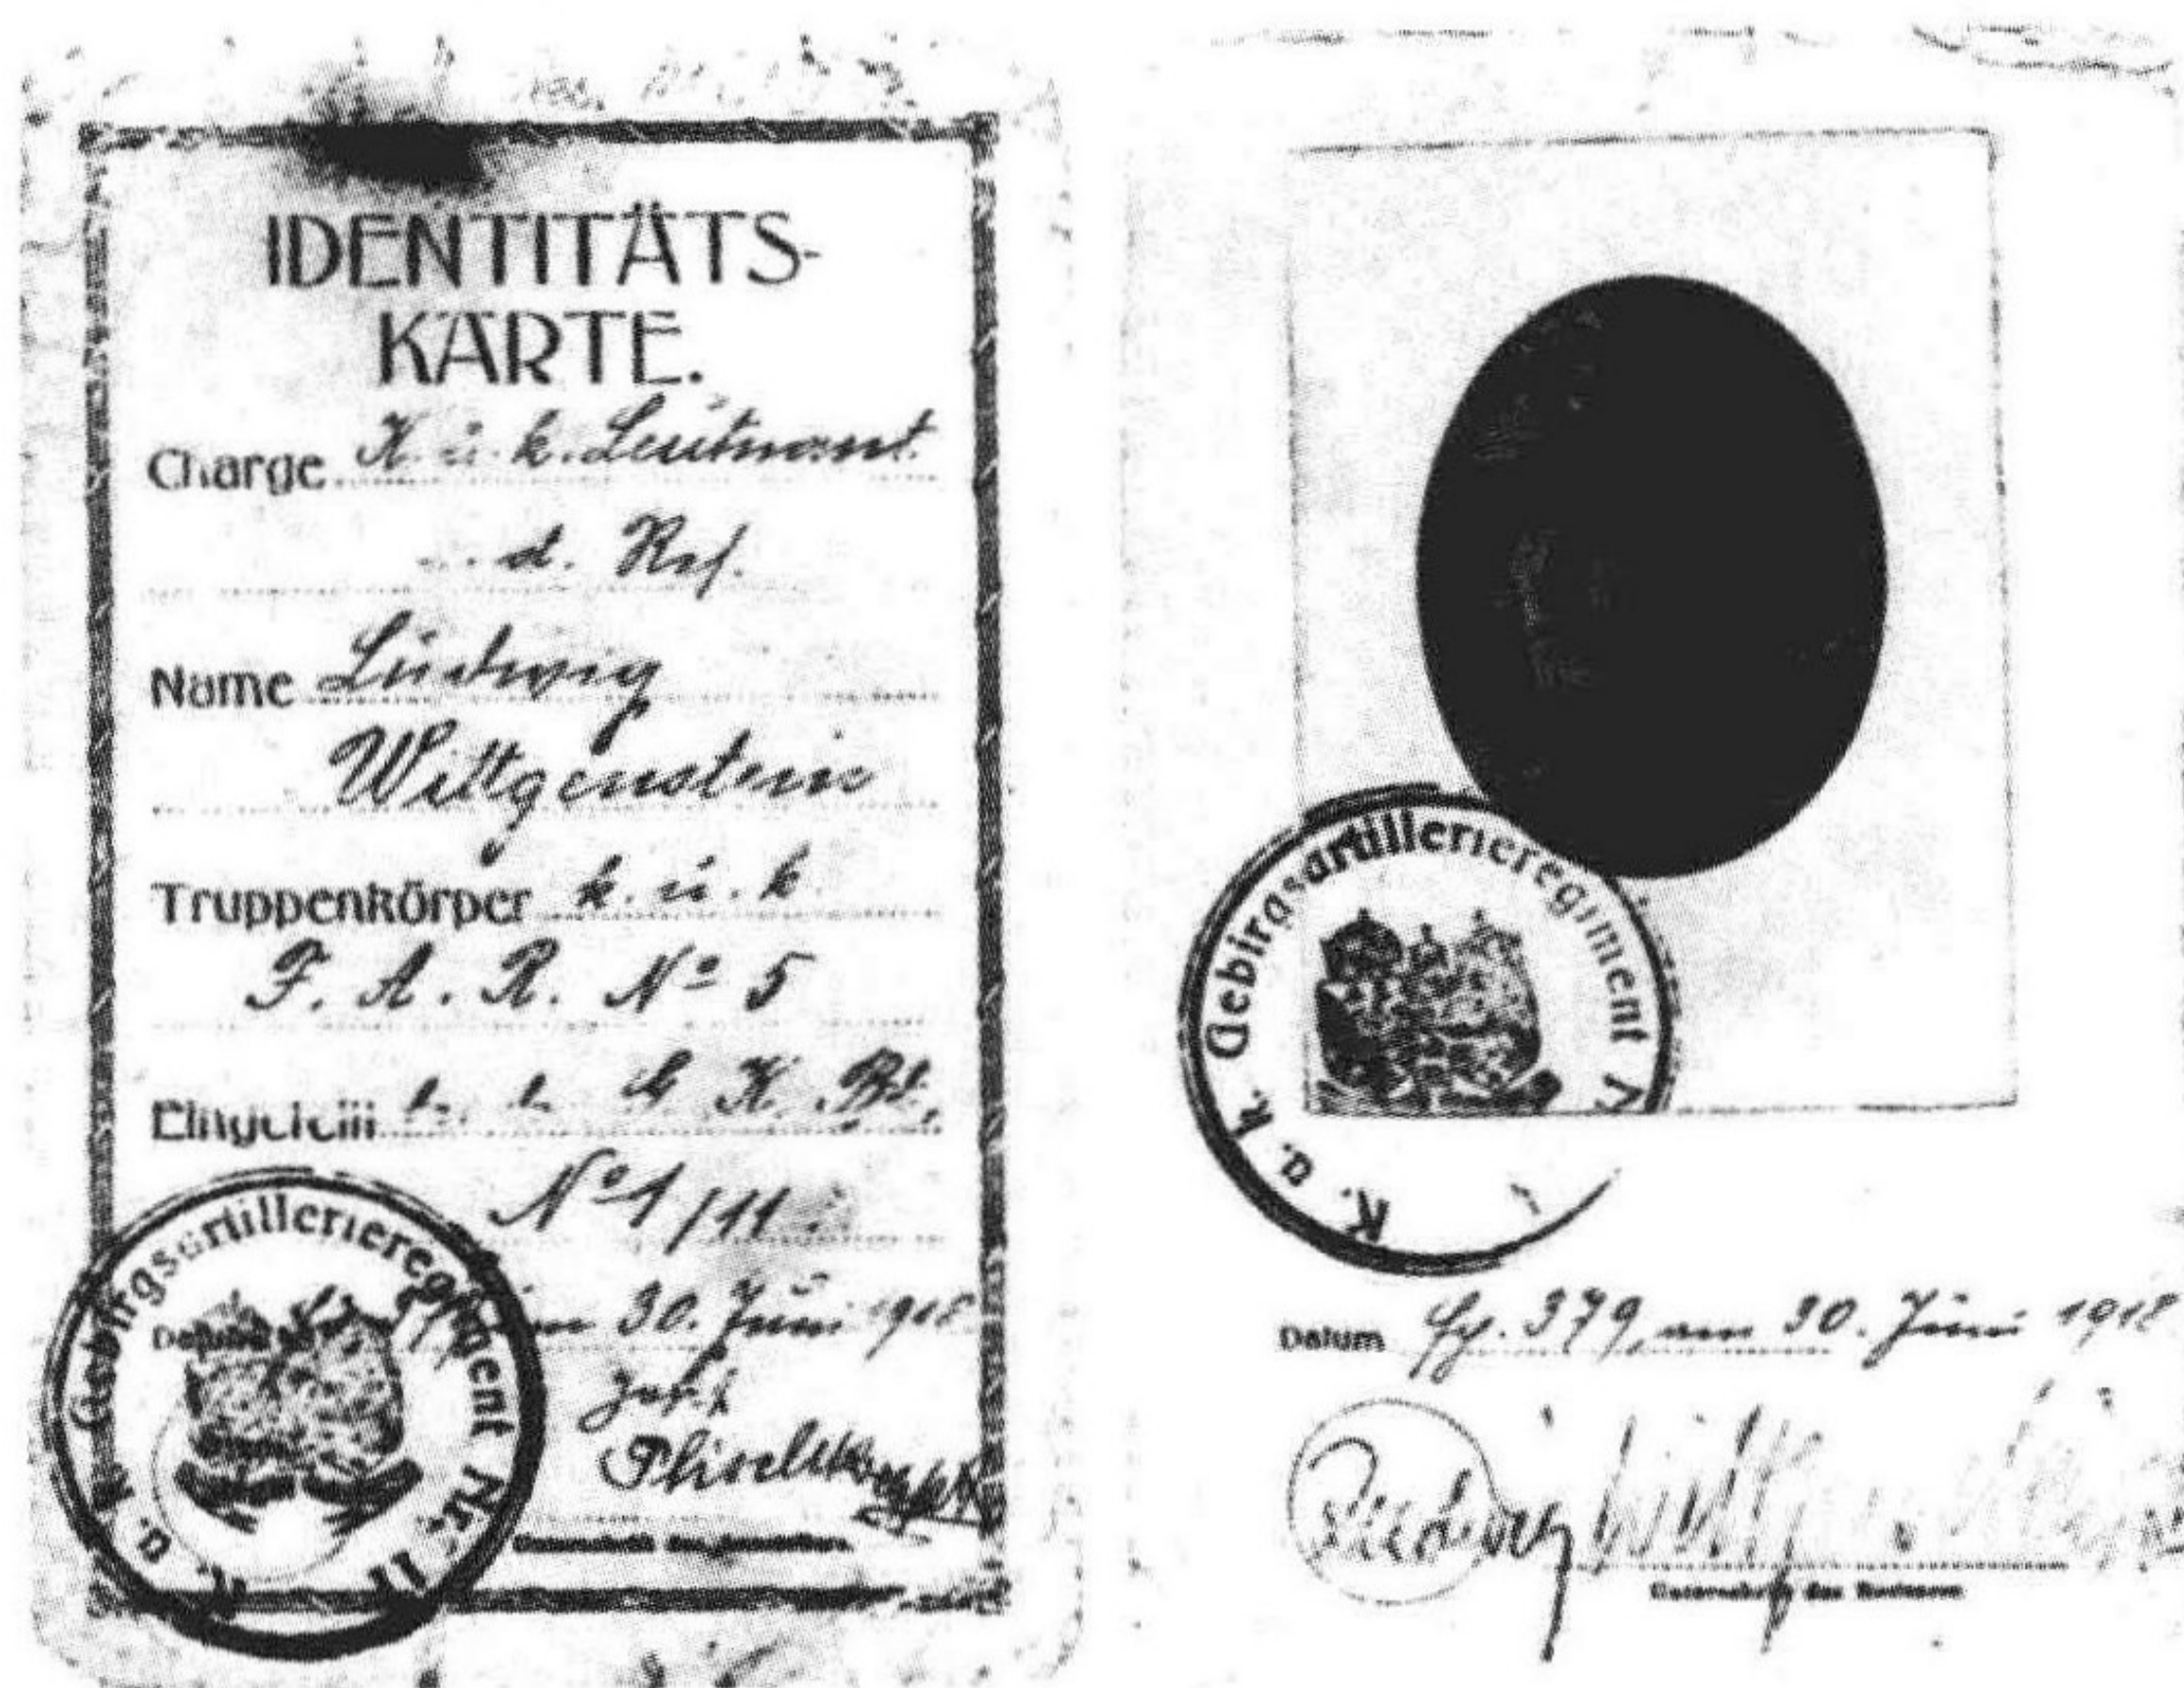 IDENTITÄTS-
KARTE.
Charge K. u. k. Leutnant
d. Res.
Name Ludwig
Wittgenstein
Truppenkörper k. u. k.
F. A. R. Nº 5
Eingeteilt G. K. Bt.
Nº 1/11
am 30. Juni 1918
K. u. k. Gebirgsartillerieregiment Nr. 11
K. u. k. Gebirgsartillerieregiment
Datum Fp. 379, am 30. Juni 1918
Ludwig Wittgenstein
Unterschrift des Besitzers